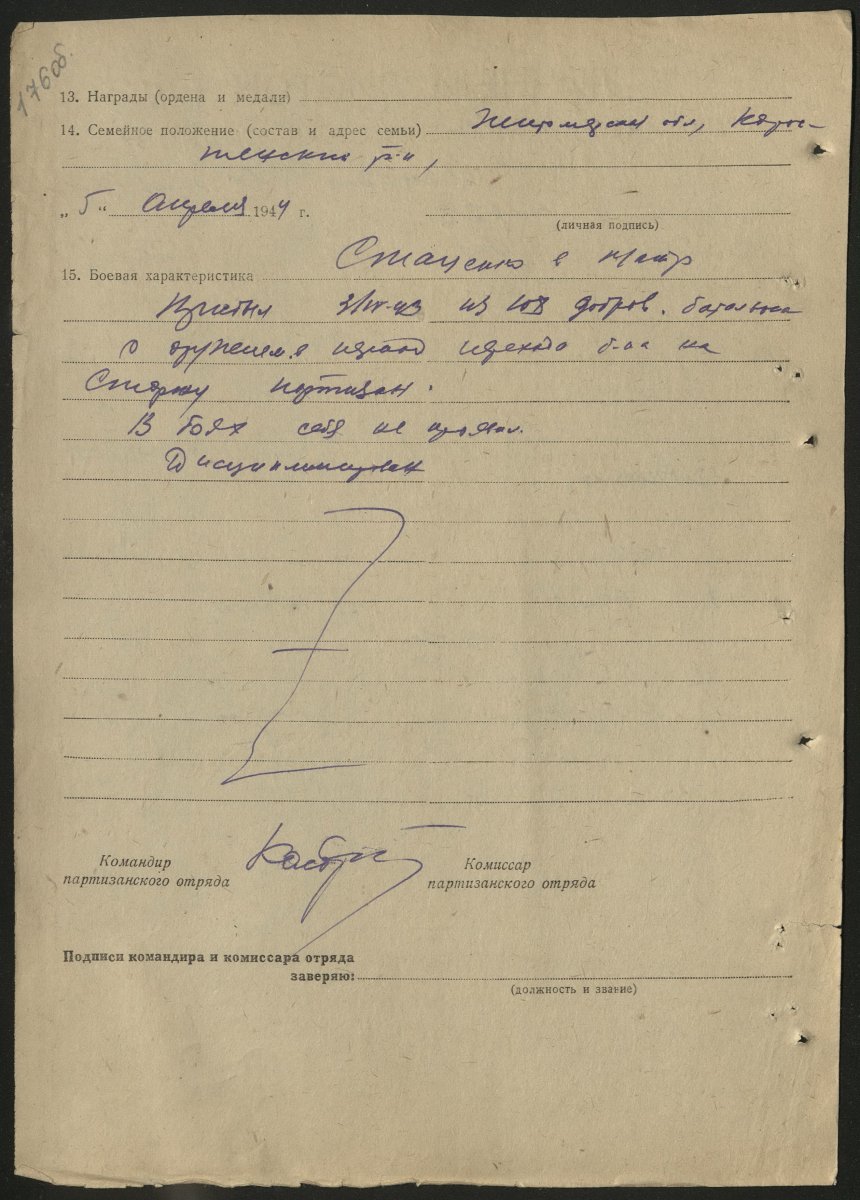 176об.
13. Награды (ордена и медали)
14. Семейное положение (состав и адрес семьи) Житомирская обл, Корос-
тенский р-н,
„5“ Апреля 1944 г.
(личная подпись)
15. Боевая характеристика Стаценко
Прибыл из 108 добров. батальона
с оружием на
Сторону партизан.
В боях себя не проявил.
Дисциплинирован
Командир
партизанского отряда
Комиссар
партизанского отряда
Подписи командира и комиссара отряда
заверяю:
(должность и звание)